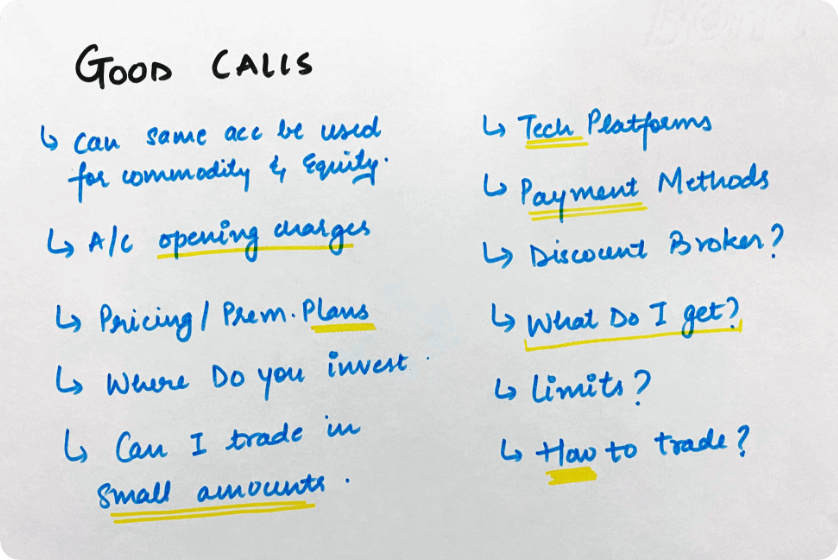 GOOD CALLS
↳ Can same acc be used
for commodity & Equity.
↳ A/C opening charges
↳ Pricing / Prem. Plans
↳ Where Do you invest.
↳ Can I trade in
small amounts.
↳ Tech Platforms
↳ Payment Methods
↳ Discount Broker?
↳ What Do I get?
↳ Limits?
↳ How to trade?